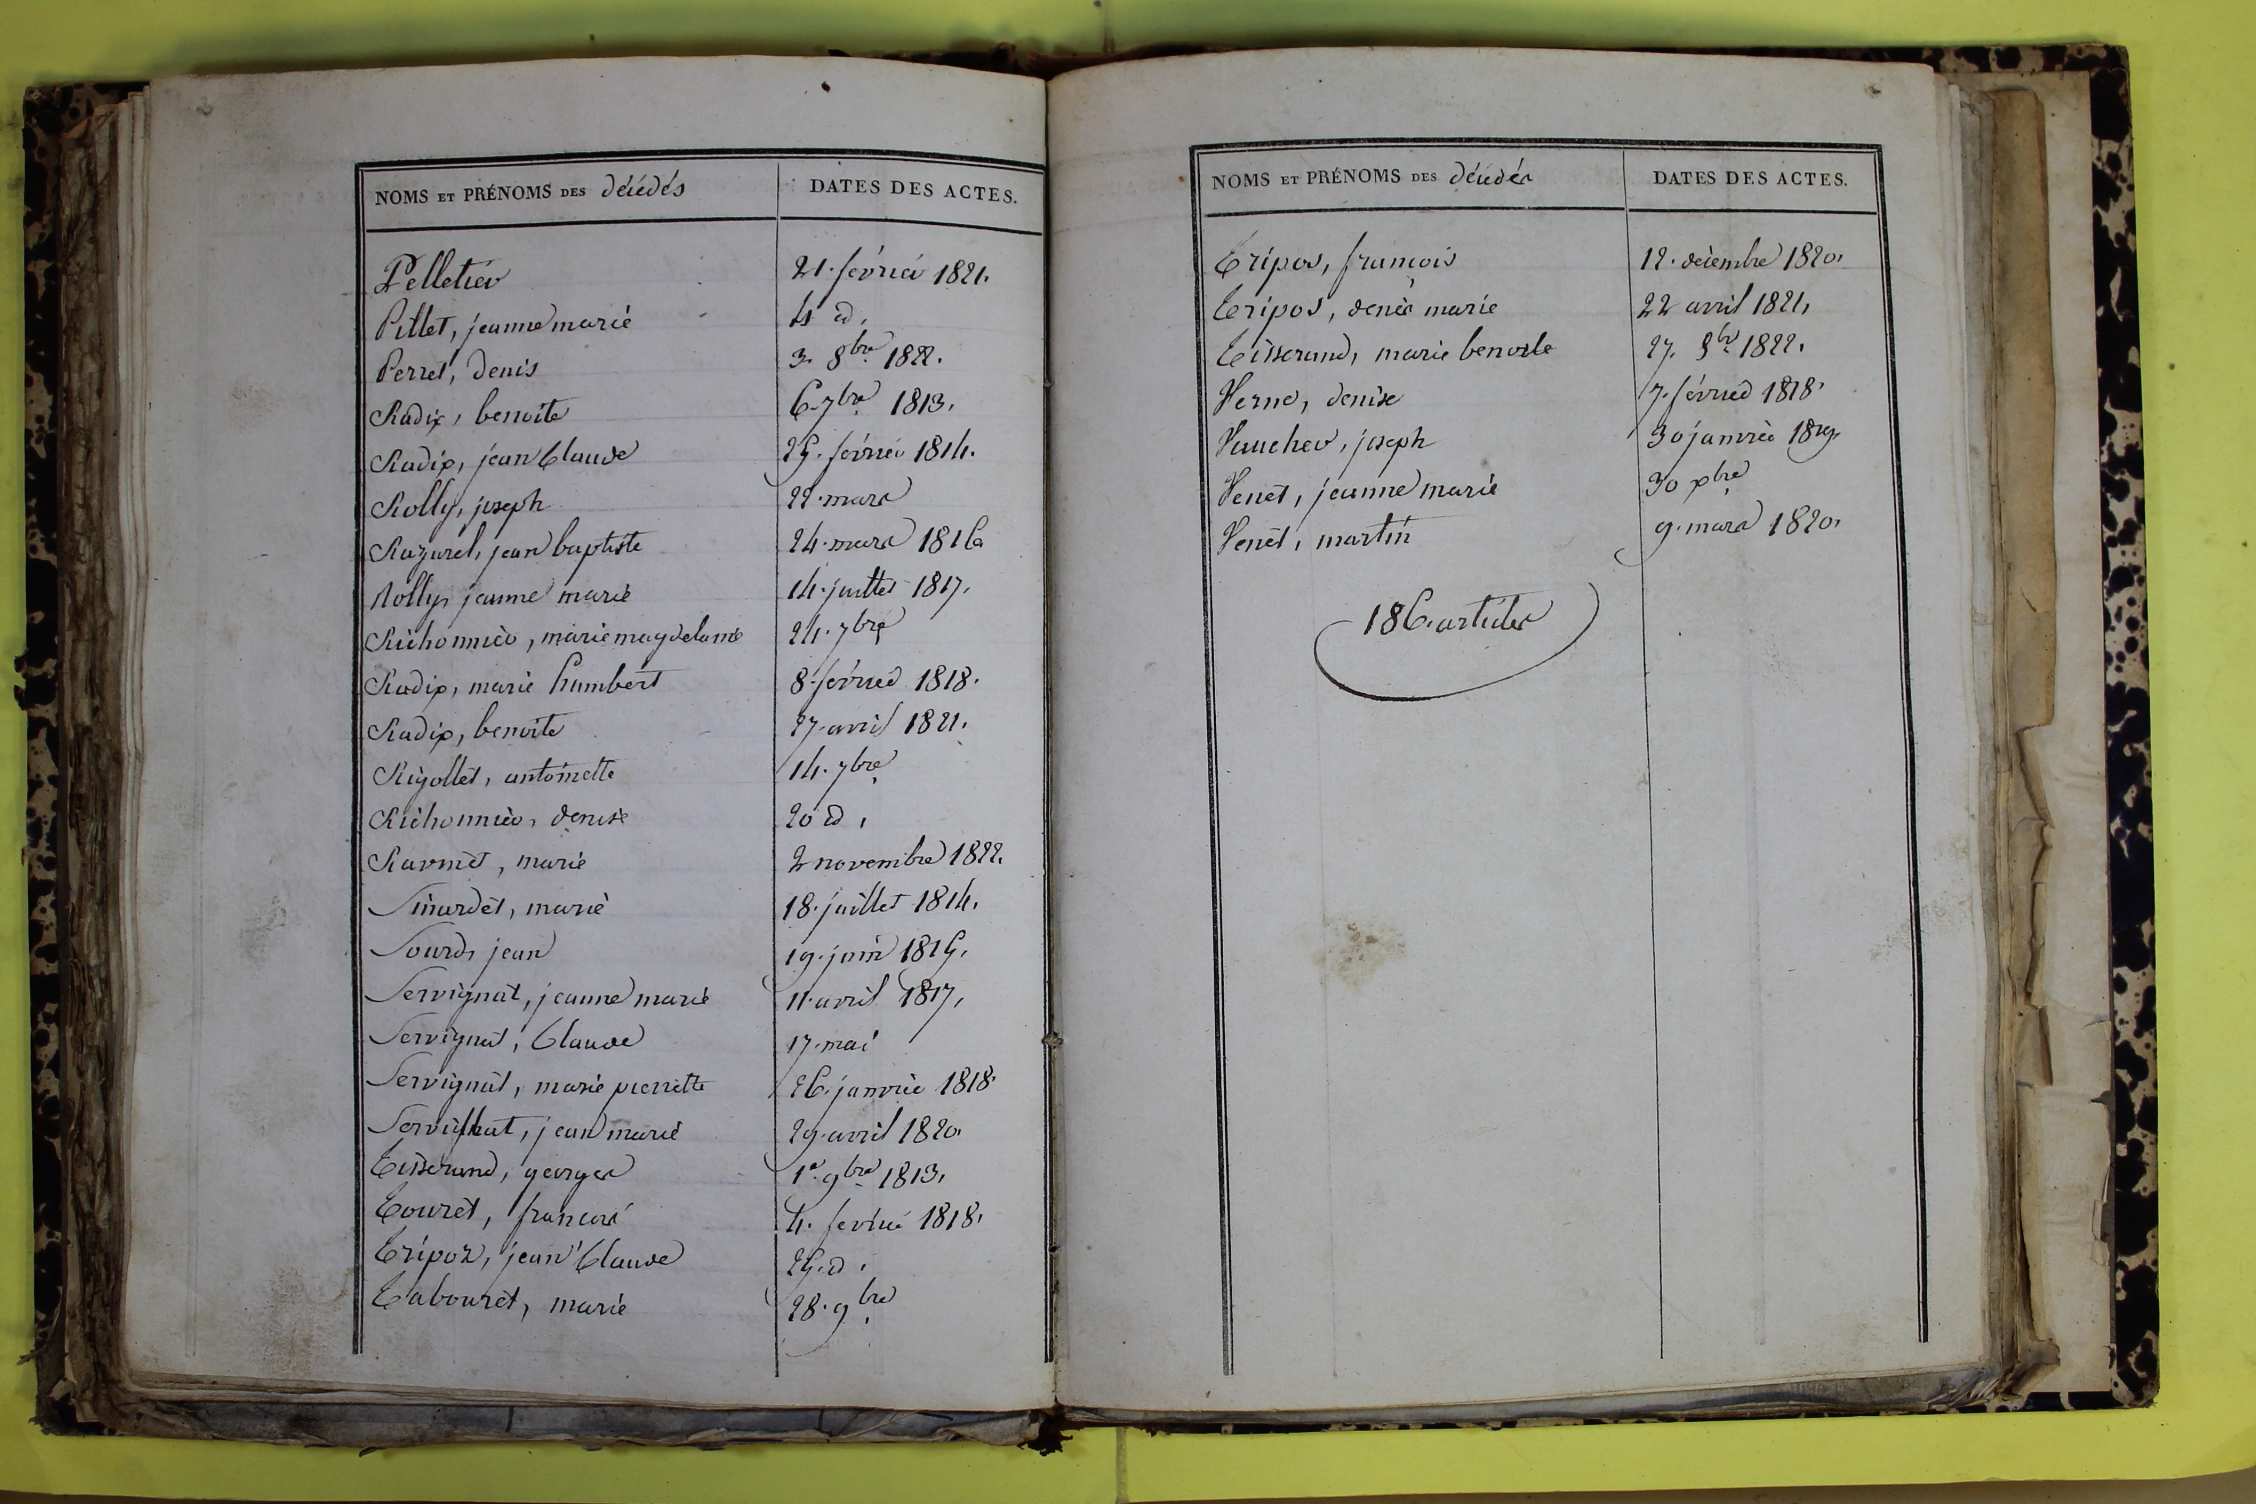 NOMS ET PRÉNOMS DES décédés DATES DES ACTES.
Pelletier 21. février 1821.
Pillet, jeanne marie 4 id.
Perret, Denis 3. 8bre 1822.
Radix, benoite 6. 7bre 1813.
Radix, jean Claude 25. février 1814.
Rolly, joseph 22. mars
Razurel, jean baptiste 24. mars 1816
Rolly, jeanne marie 14. juillet 1817.
Richonnier, marie magdelaine 24. 7bre
Radix, marie humbert 8. février 1818.
Radix, benoite 27. avril 1821.
Rigollet, antoinette 14. 7bre
Richonnier, denise 20 id.
Ravinet, marie 2 novembre 1822.
Sinardet, marie 18. juillet 1814.
Sourd, jean 19. juin 1815.
Servignat, jeanne marie 11. avril 1817.
Servignat, Claude 17. mai
Servignat, marie pierrette 26. janvier 1818.
Servignat, jean marie 29. avril 1820.
Tisserand, georges 1er. 9bre 1813.
Touret, francois 4. fevrier 1818.
Tripoz, jean Claude 25. id.
Tabouret, marie 28. 9bre
NOMS ET PRÉNOMS DES décédés DATES DES ACTES.
Tripos, françois 12. décembre 1820.
Tripos, denis marie 22 avril 1821.
Tisserand, marie benoite 27. 8bre 1822.
Verne, denise 7. février 1818.
Vaucher, joseph 30 janvier 1819.
Venet, jeanne marie 30 xbre
Venet, martin 9. mars 1820.
186. articles